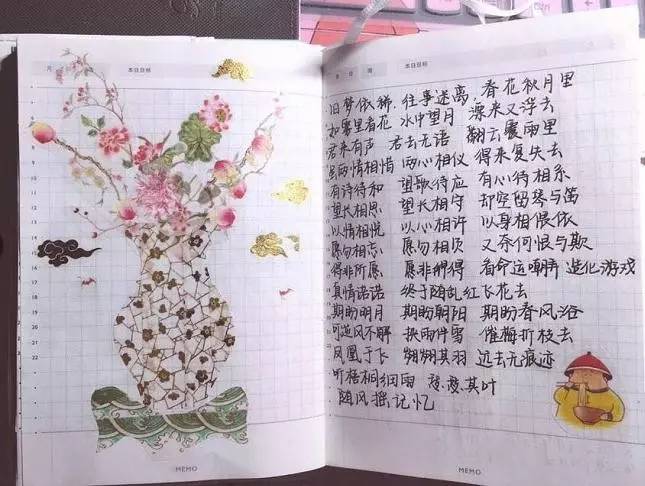 月 日 本日目标
月 日 本日目标
旧梦依稀 往事迷离 春花秋月里
如雾里看花 水中望月 漂来又浮去
君来有声 君去无语 翻云覆雨里
虽两情相惜 两心相仪 得来复失去
有诗待和 望歌待应 有心待相系
望长相思 望长相守 却空留琴与笛
以情相悦 以心相许 以身相偎依
愿勿相忘 愿勿相负 又奈何恨与欺
得非所愿 愿非所得 看命运嘲弄 造化游戏
真情诺诺 终于随乱红飞花去
期盼明月 期盼朝阳 期盼春风浴
可逆风不解 挟雨伴雪 催梅折枝去
凤凰于飞 翙翙其羽 远去无痕迹
听梧桐细雨 瑟瑟其叶
随风摇记忆
MEMO
MEMO